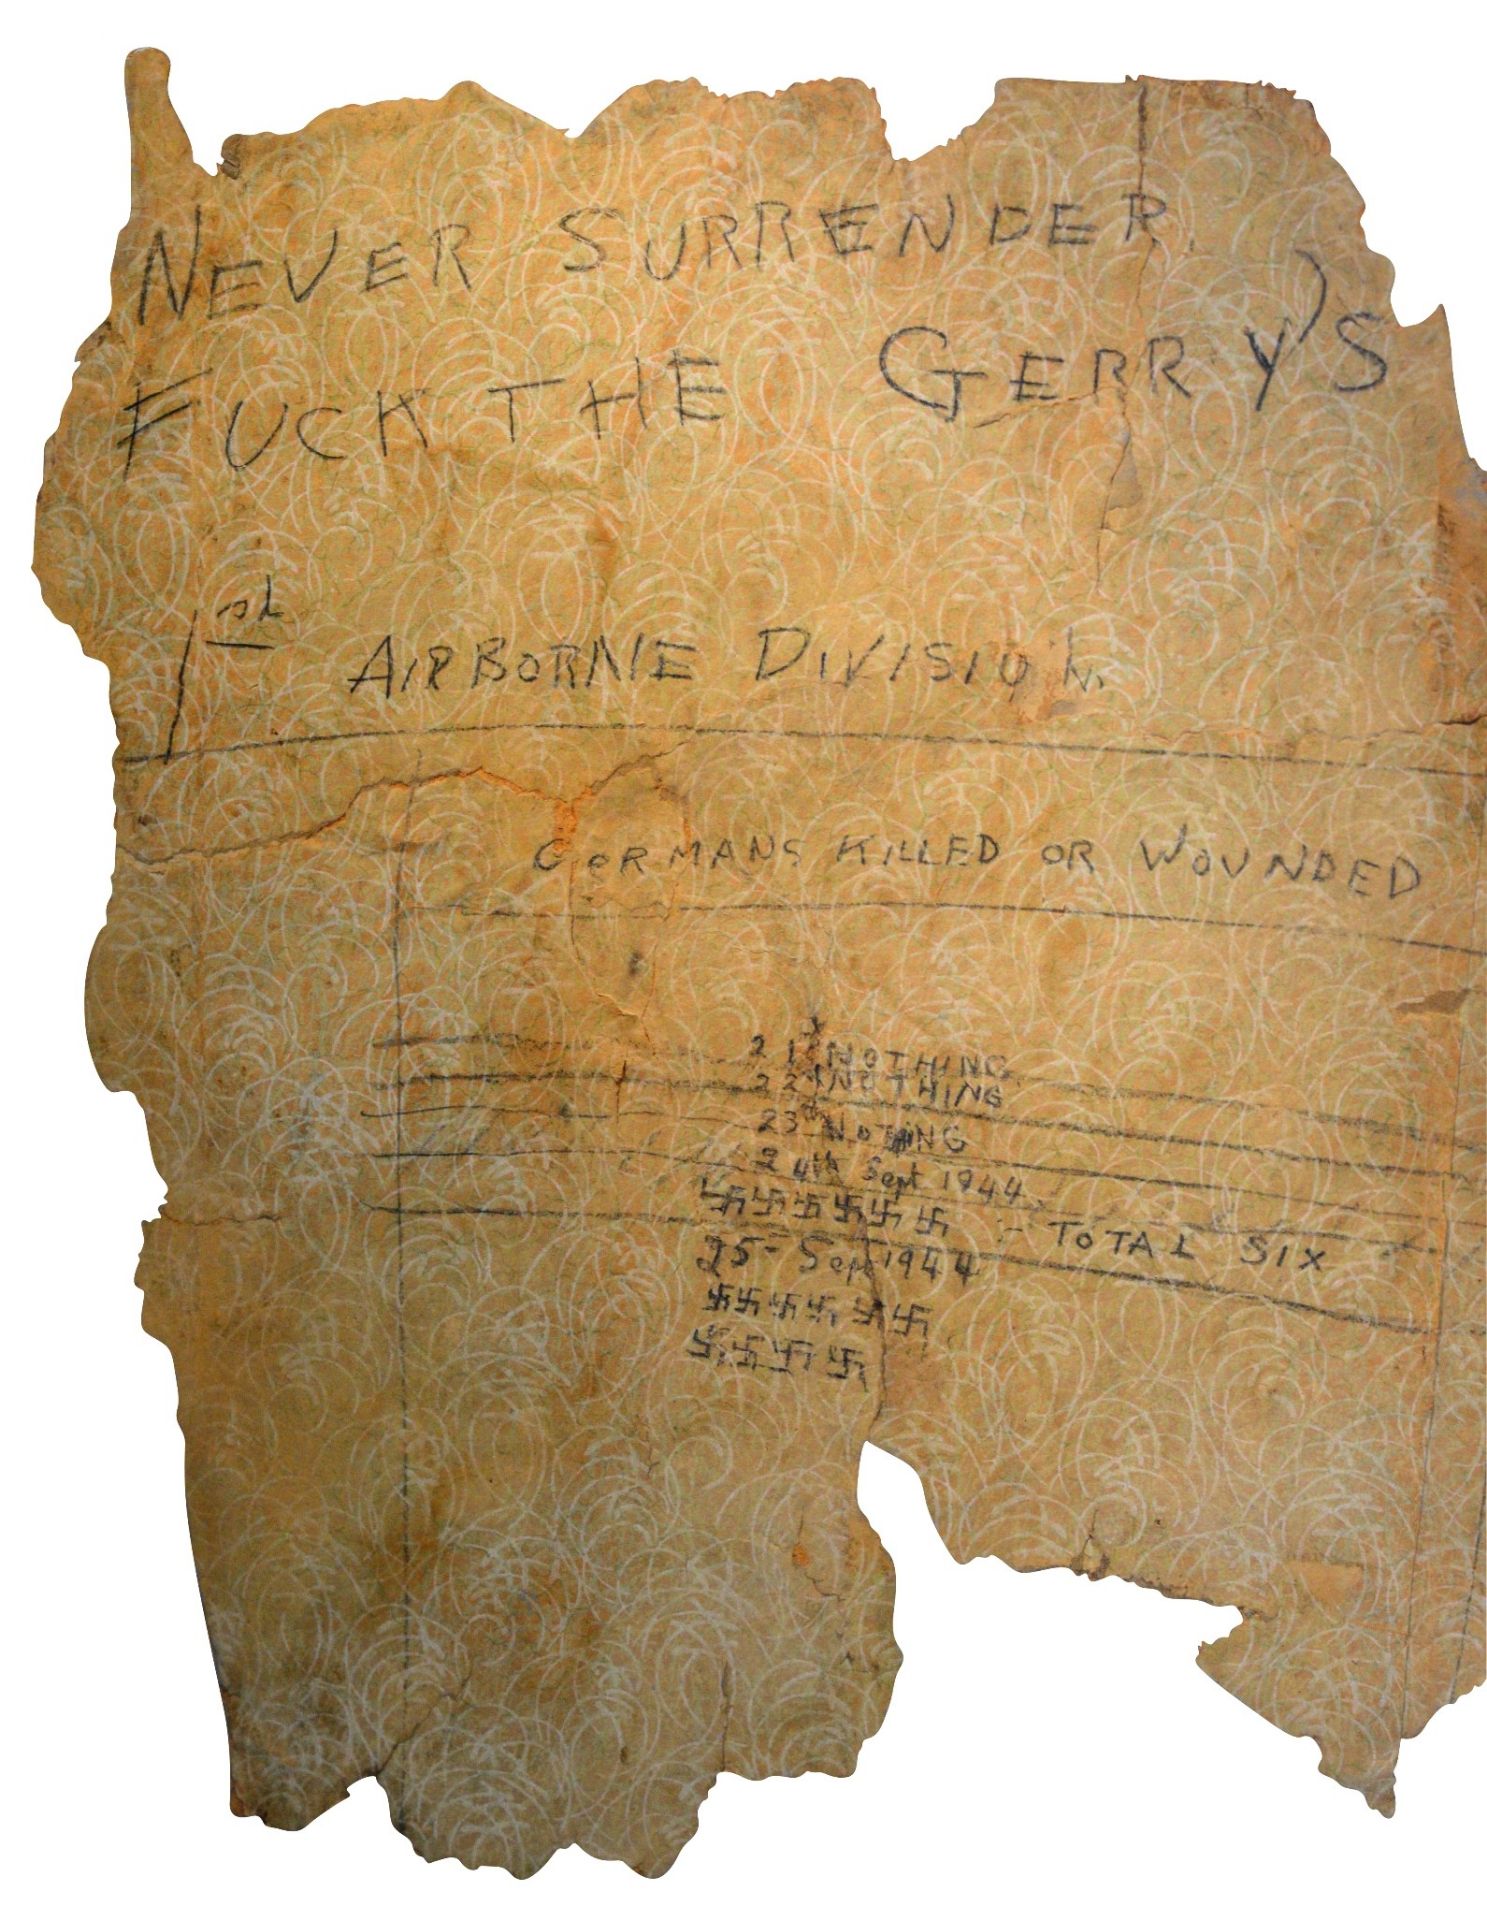 NEVER SURRENDER.
FUCK THE GERRY'S
1st AIRBORNE DIVISION.
GERMANS KILLED OR WOUNDED
21st NOTHING
22nd NOTHING
23rd NOTHING
24th Sept 1944
卐卐卐卐卐卐 :- TOTAL SIX
25- Sept 1944
卐卐卐卐卐卐
卐卐卐卐